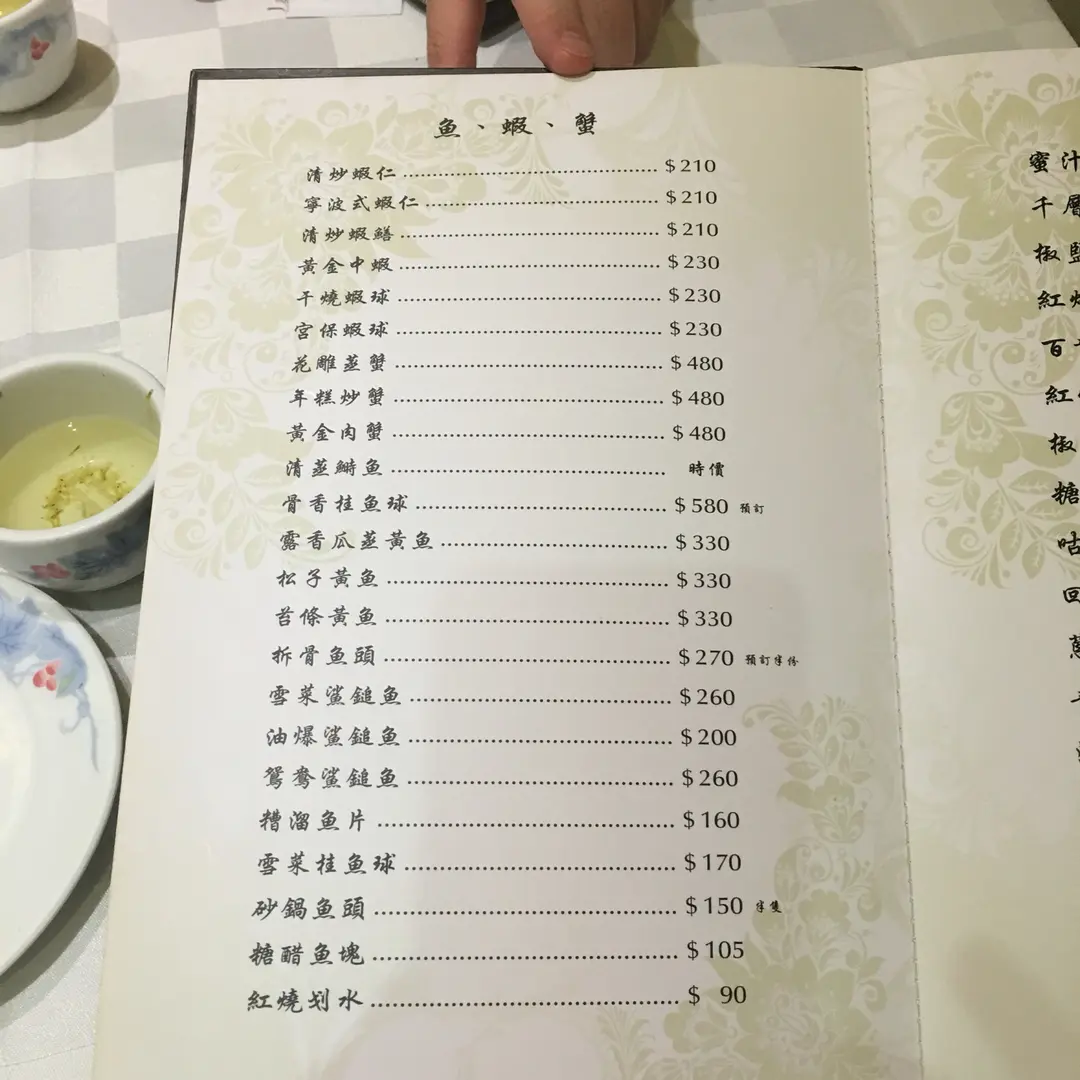 魚、蝦、蟹
清炒蝦仁 $210
寧波式蝦仁 $210
清炒蝦鱔 $210
黃金中蝦 $230
干燒蝦球 $230
宮保蝦球 $230
花雕蒸蟹 $480
年糕炒蟹 $480
黃金肉蟹 $480
清蒸鰣魚 時價
骨香桂魚球 $580 預訂
露香瓜蒸黃魚 $330
松子黃魚 $330
苔條黃魚 $330
拆骨魚頭 $270 預訂半份
雪菜鯊鎚魚 $260
油爆鯊鎚魚 $200
鴛鴦鯊鎚魚 $260
糟溜魚片 $160
雪菜桂魚球 $170
砂鍋魚頭 $150 半隻
糖醋魚塊 $105
紅燒划水 $ 90
蜜汁
千層
椒鹽
紅燒
百
紅
椒
糖
咕
回
蔥